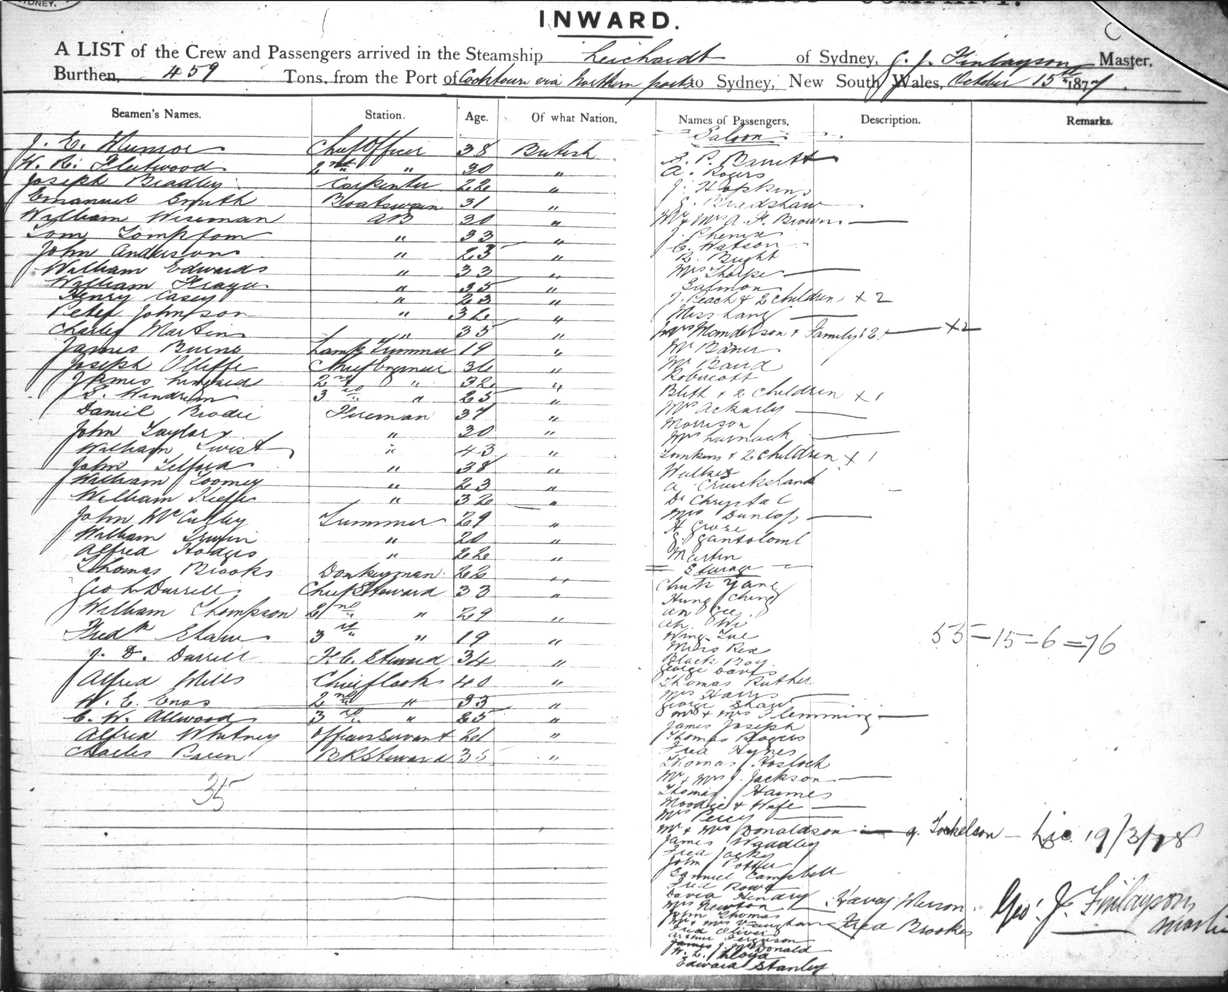 SYDNEY.
INWARD.
A LIST of the Crew and Passengers arrived in the Steamship Leichardt of Sydney, G. J. Finlayson Master,
Burthen, 459 Tons, from the Port of Cooktown via Northern ports to Sydney, New South Wales, October 15th 1877
Seamen's Names. Station. Age. Of what Nation, Names of Passengers, Description. Remarks.
J. E. Munroe Chief Officer 38 British
W. H. Fleetwood 2nd " 30 "
Joseph Bradley Carpenter 22 "
Emanuel Smith Boatswain 31 "
William Wiseman AB 30 "
Tom Tompson " 33 "
John Anderson " 23 "
William Edwards " 33 "
William " 35 "
Henry Casey " 23 "
Peter Johnson " 32 "
Charley Martin " 35 "
James Burns Lamp Trimmer 19 "
Joseph Olliffe Chief Engineer 36 "
James 2nd " 32 "
Windrum 3rd " 25 "
Daniel Brodie Fireman 37 "
John Taylor " 30 "
William Twist " 43 "
John Telford " 38 "
William Toomey " 23 "
William Keeffe " 32 "
John McCulley Trimmer 29 "
William Irwin " 20 "
Alfred Hodges " 22 "
Thomas Brooks Donkeyman 22 "
Geo L Darrell Chief Steward 33 "
William Thompson 2nd " 29 "
Fredk Shaw 3rd " 19 "
J. D. Darrell F. C. Steward 34 "
Alfred Mills Chief Cook 40 "
W. E. Enos 2nd " 33 "
C. W. Allwood 3rd " 25 "
Alfred Whitney Officers Servant 21 "
Charles Steward 35 "
35
Saloon
A. P. Barnett
A. Rogers
J. Hopkins
J. Bradshaw
Mr & Mrs A. F. Brown
J. Phenix
C. Watson
R. Bright
Mrs Thorpe
Salmon
J. Peach & 2 children x 2
Miss Lang
Mrs Manderson & Family 2 x2
Mr Baner
Mr Baird
Robucott
Blith & 2 children x 1
Mrs Ackerley
Morrison
Mrs
& 2 children x 1
Walker
A Cruickshank
Dr Chrystal
Mrs Dunlop
H Grose
Martin
Steerage
Chuk Yang
Hung Ching
An Gee
Ah Wi
Wing Lue
Miles Rea
Black Boy
George Davis
Thomas Ruther
Mrs Harris
George Shaw
Mr & Mrs Flemming
James Joseph
Thomas Rogers
Fred Hynes
Thomas Hosloch
Mr & Mrs J. Jackson
Thomas Haines
Moodie & Wife
Mrs Percy
Mr & Mrs Donaldson
James Waddley
Fred
John Potter
Daniel Campbell
Fred Rowe
David Hendry
Mrs Newton
John Thomas
Mr & Mrs Vaughan
Fred Oliver
Arthur Ferguson
James McDonald
W. L. Lloyd
Edward Stanley
55 – 15 – 6 = 76
Lic 19/3/78
Fred Brookes
Geo. J. Finlayson
Master